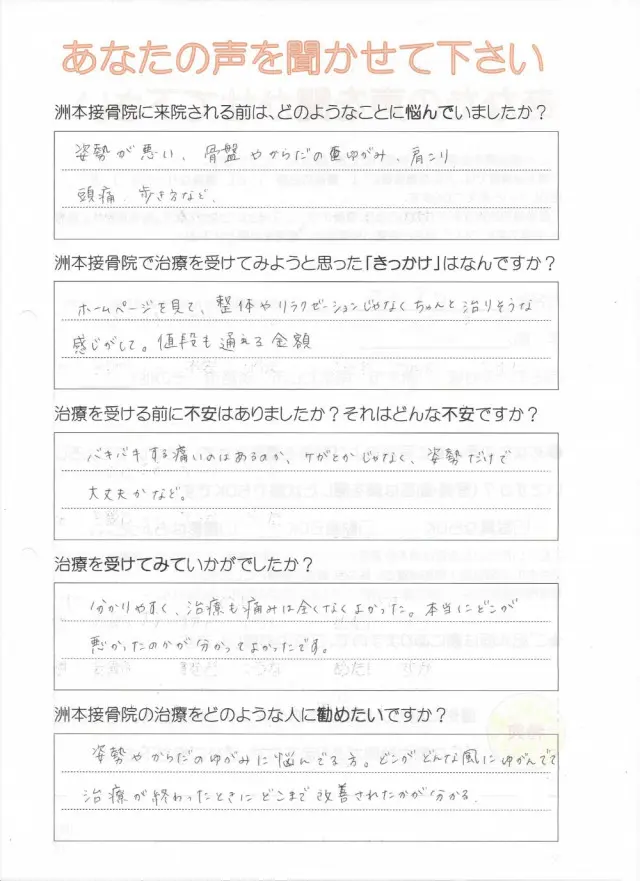 あなたの声を聞かせて下さい
洲本接骨院に来院される前は、どのようなことに悩んでいましたか？
姿勢が悪い、骨盤やからだの重ゆがみ、肩こり
頭痛、歩き方など、
洲本接骨院で治療を受けてみようと思った「きっかけ」はなんですか？
ホームページを見て、整体やリラクゼーションじゃなくちゃんと治りそうな
感じがして。値段も通える金額
治療を受ける前に不安はありましたか？それはどんな不安ですか？
バキバキする痛いのはあるのか、ケガとかじゃなく、姿勢だけで
大丈夫かなど。
治療を受けてみていかがでしたか？
分かりやすく、治療も痛みは全くなくよかった。本当にどこが
悪かったのかが分かってよかったです。
洲本接骨院の治療をどのような人に勧めたいですか？
姿勢やからだのゆがみに悩んでる方。どこがどんな風にゆがんでて
治療が終わったときにどこまで改善されたかが分かる.